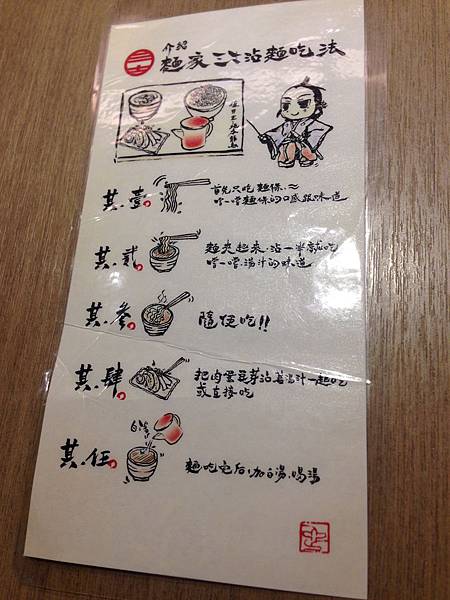 介紹
麵家三士沾麵吃法
其.壹
首先只吃麵條~
嚐一嚐麵條的口感跟味道
其.貳
麵夾起來,沾一半就吃
嚐一嚐.湯汁的味道
其.參
隨便吃!!
其.肆
把肉、豆芽沾著湯汁一起吃
或直接吃
白湯
其.伍
麵吃完后,加白湯,喝湯